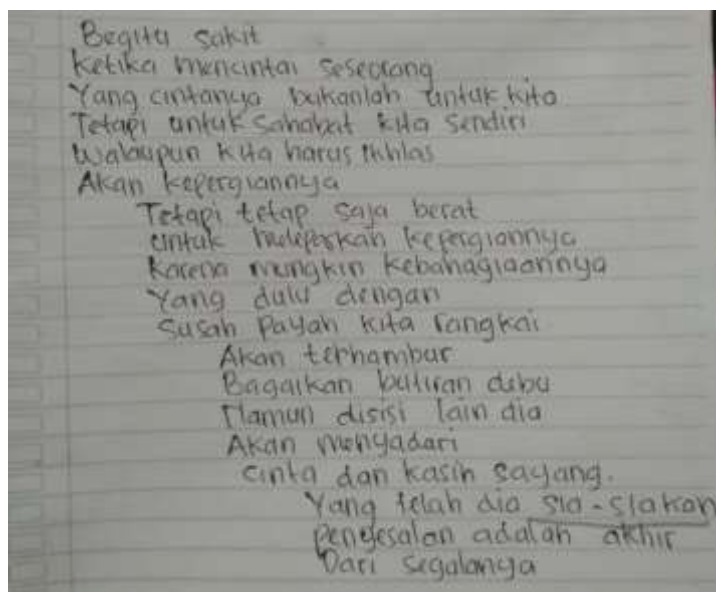 Begitu sakit
Ketika mencintai seseorang
Yang cintanya bukanlah untuk kita
Tetapi untuk sahabat kita sendiri
Walaupun kita harus ikhlas
Akan kepergiannya
Tetapi tetap saja berat
untuk melepaskan kepergiannya
Karena mungkin kebahagiaannya
Yang dulu dengan
Susah Payah kita rangkai
Akan terhambur
Bagaikan butiran debu
Namun disisi lain dia
Akan menyadari
cinta dan kasih sayang.
Yang telah dia sia-siakan
penyesalan adalah akhir
Dari segalanya